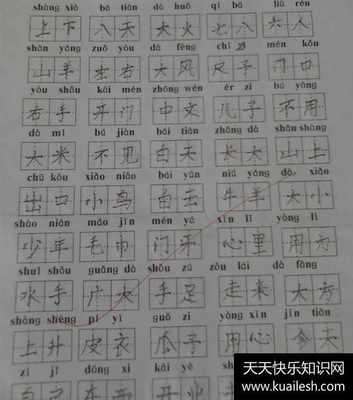 shàng xià bā tiān dà huǒ qī bā liù rén
上下 八天 大火 七八 六人
shān yáng zuǒ yòu dà fēng chǐ mén kǒu
山羊 左右 大风 尺子 门口
yòu shǒu kāi mén zhōng wén ér zi bú yòng
右手 开门 中文 儿子 不用
dà mǐ bú jiàn bái tiān zhǎng dà shān shàng
大米 不见 白天 长大 山上
chū kǒu xiǎo niǎo bái yún niú yáng dà xiǎo
出口 小鸟 白云 牛羊 大小
shào nián máo jīn mén yá xīn lǐ yòng lì
少年 毛巾 门牙 心里
shuǐ shǒu guǎng dà shǒu zú zǒu lái dà fāng
水手 广大 手足 走来 大方
shàng shēng pí yī zǐ yòng xīn jīn tiān
上升 皮衣 瓜子 用心 今天
天天快乐知识网
www.kuailesh.com